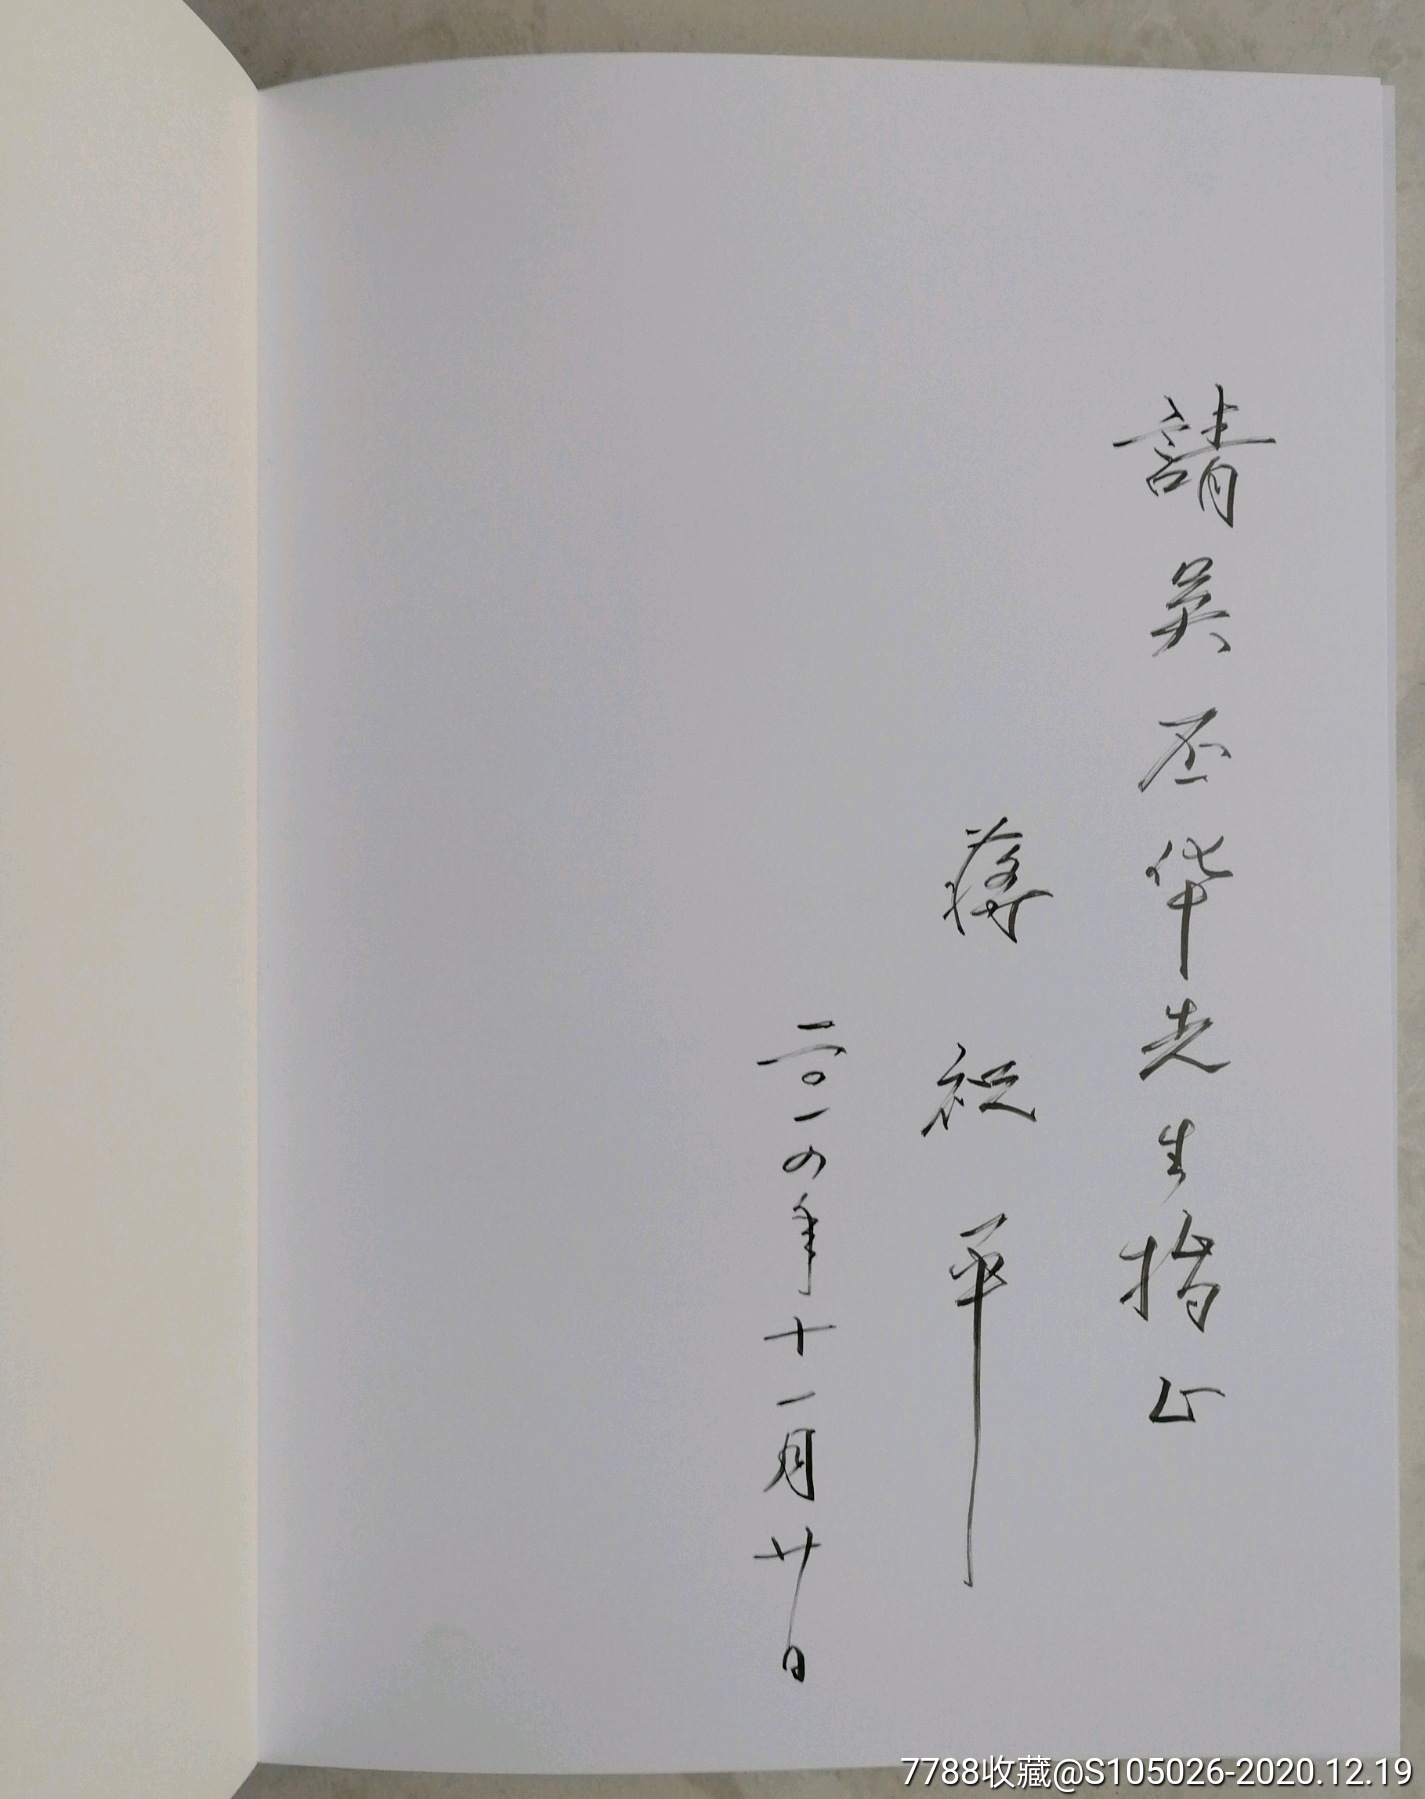 請吴丕华先生指正
蒋祖平
二〇一四年十一月廿日
7788收藏@S105026-2020.12.19